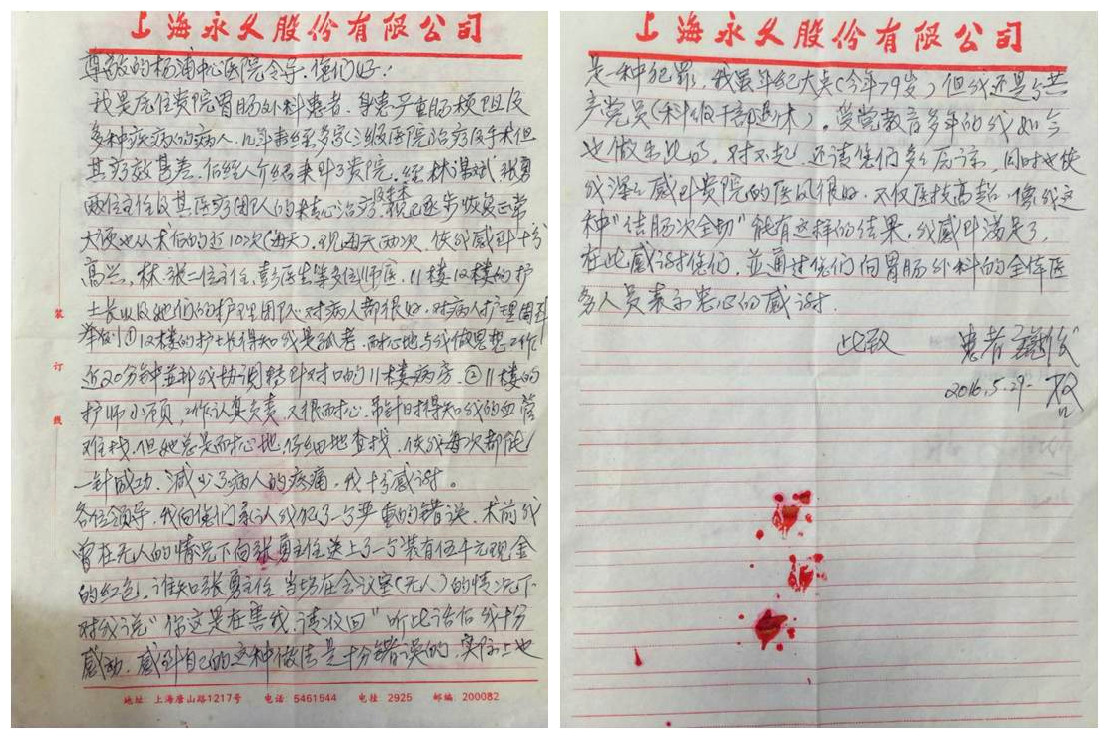 上海永久股份有限公司
尊敬的杨浦中心医院领导，您们好！
我是住贵院胃肠外科患者，身患严重肠梗阻及
多种疾病的病人，几年来经多家三级医院治疗及手术但
其疗效甚差，后经人介绍来到了贵院，经林谋斌、张勇
两位主任及其医疗团队的精心治疗，我已逐步恢复正常
大便也从术后的近10次（每天），现每天两次，使我感到十分
高兴，林、张二位主任，彭医生等多位师医，11楼、12楼的护
士长以及她们的护理团队，对病人都很好，对病人护理周到
举例①12楼的护士长得知我是孤老，耐心地与我做思想工作
近20分钟並帮我协调转到对口的11楼病房。②11楼的
护师小顾，工作认真负责，又很耐心，吊针时得知我的血管
难找，但她总是耐心地，仔细地查找，使我每次都能
一针成功，减少了病人的疼痛，我十分感谢。
各位领导，我向您们承认我犯了一个严重的错误，术前我
曾在无人的情况下向张勇主任送上了一个装有伍千元现金
的红包，谁知张勇主任当场在会议室（无人）的情况下
对我说“你这是在害我，请收回”听此话后我十分
感动，感到自己的这种做法是十分错误的，实际上也
装
订
线
地址：上海唐山路1217号 电话：5461544 电挂：2925 邮编：200082
上海永久股份有限公司
是一种犯罪，我虽年纪大点（今年79岁）但我还是个共
产党员（科级干部退休）。受党教育多年的我如今
也做出此事，对不起，还请您们多多原谅，同时也使
我深深感到贵院的医风很好，不仅医技高超，像我这
种“结肠次全切”能有这样的结果，我感到满足了，
在此感谢您们，並通过您们向胃肠外科的全体医
务人员表示衷心的感谢．
此致 患者
2016.5.29